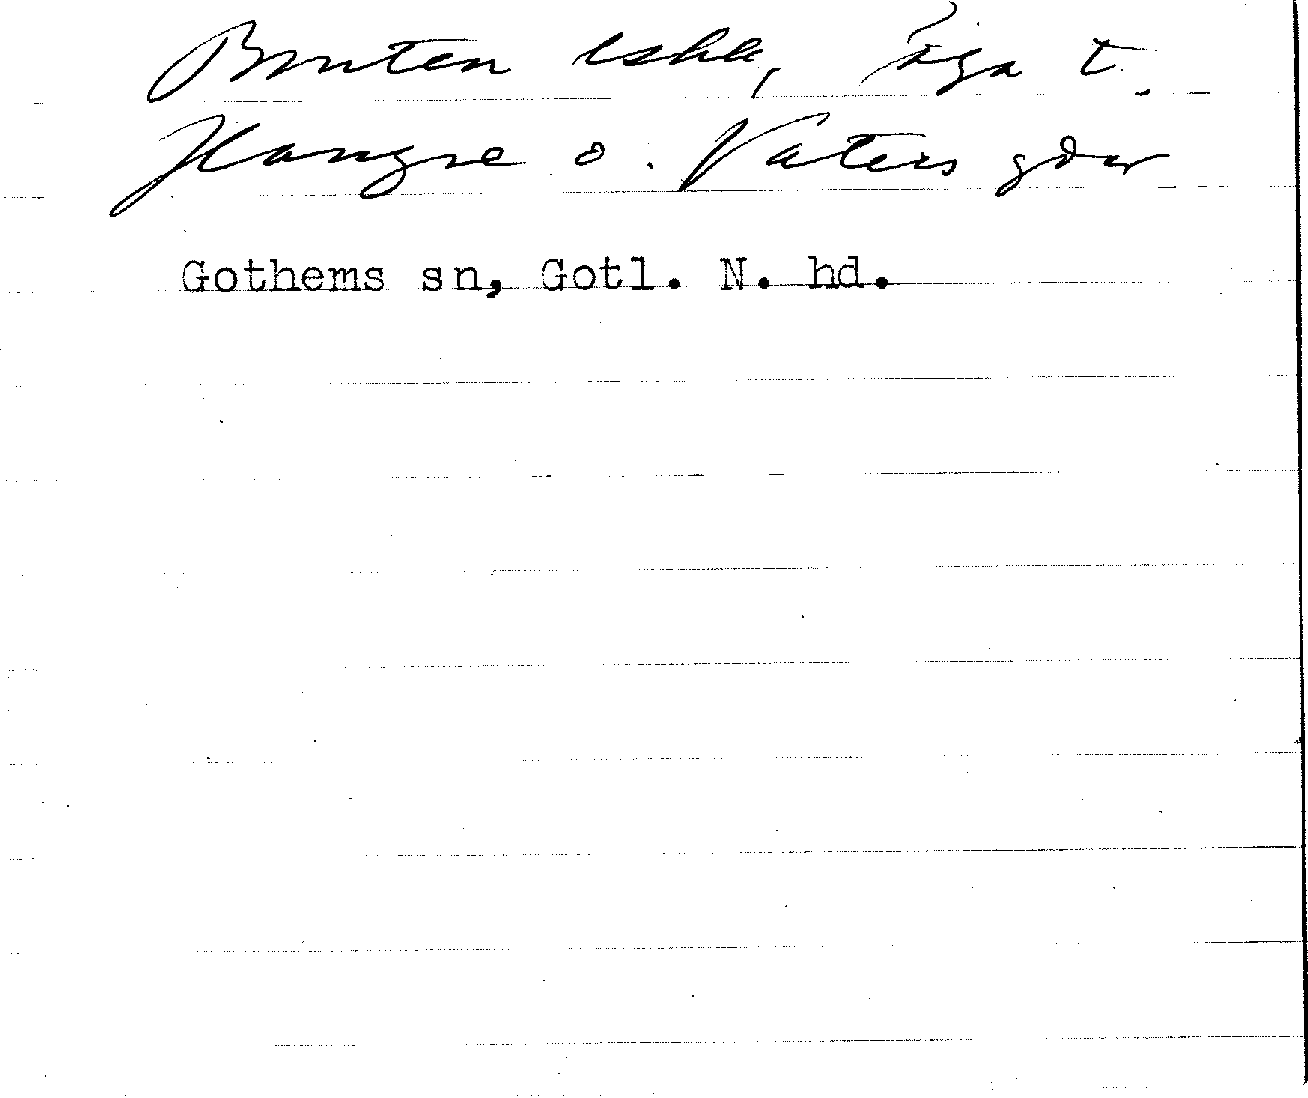 Bruten eska, äga t.
Hangre o. Vaters gdar
Gothems sn, Gotl. N. hd.